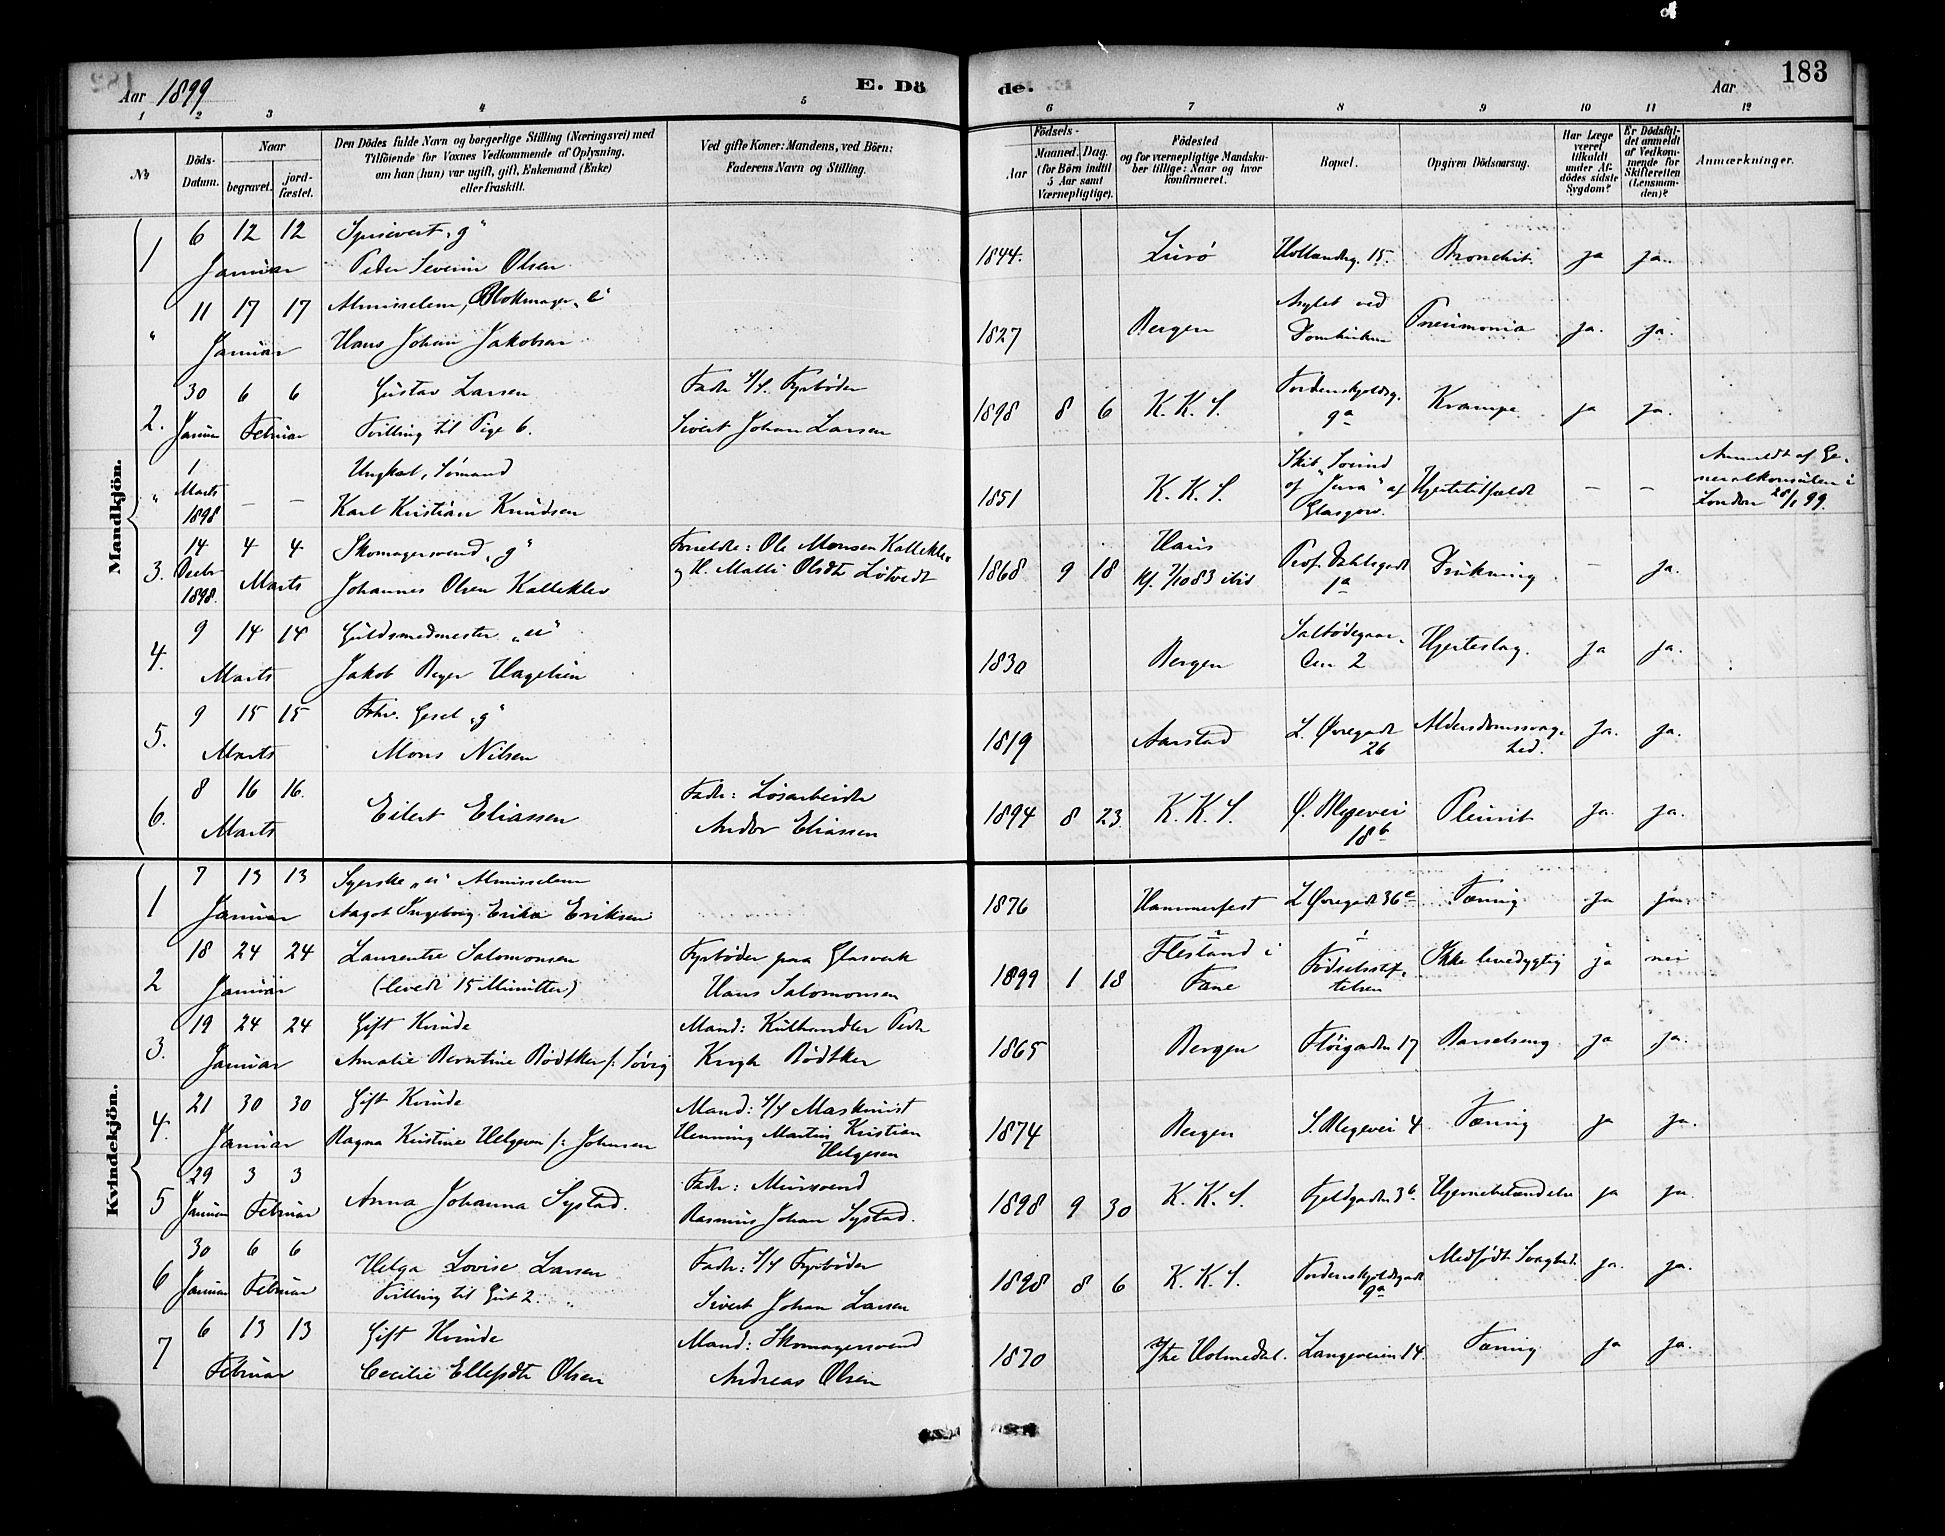 Aar 1899
E. Dö
de.
Aar
183
1 2 3 4 5 6 7 8 9 10 11 12
No
Döds-Datum.
Naar
begravet.
jordfæstet.
Den Dödes fulde Navn og borgerlige Stilling (Næringsvei) med
Tilföiende for Voxnes Vedkommende af Oplysning,
om han (hun) var ugift, gift, Enkemand (Enke)
eller fraskilt.
Ved gifte Koner: Mandens, ved Börn:
Faderens Navn og Stilling.
Födsels-
Aar
Maaned. Dag.
(for Børn indtil
5 Aar samt
Værnepligtige).
Födested
og for værnepligtige Mandskaber tillige: Naar og hvor
konfirmeret.
Bopæl.
Opgiven Dödsaarsag.
Har Læge
været
tilkaldt
under Afdödes sidste
Sygdom?
Er Dödsfaldet anmeldt
af Vedkommende for
Skifteretten
(Lensmanden)?
Anmærkninger.
Mandkjön.
1 6 12 12 Januar
"g"
Peder Severin Olsen
1844. Lurö Hollendrg. 15. Bronchit. ja ja.
" 11 17 17 Januar
Almisselem, Blokmager "e"
Hans Johan Jakobsen
1827 Bergen Asylet ved
Domkirken Pneumonia ja. ja.
2. 30 6 6 Januar Februar
Gustav Larsen
Tvilling til Pige 6.
Fader f/f. Fyrbøder
Sivert Johan Larsen
1898 8 6 K. K. S. Tordenskjoldsg.
9a Krampe ja ja.
" 1 Marts 1898 — —
Ungkal, Sømand
Karl Kristian Knudsen
1851 K. K. S. Skib
af Glasgow. Hjertetilfælde — —
Anmeldt af Generalkonsulen i
London 28/1 99.
3. 14 Decbr 1898. 4 4 Marts
Skomagersvend "g"
Johannes Olsen Kalleklev
Forældre: Ole Monsen Kalleklev
og H. Malli Olsdtr Løtvedt
1868 9 18 Haus
kf. 7/10 83 ibid Prof. Dahlsgade
1a Drukning — ja.
4. 9 14 14 Marts
Guldsmedmester "e"
Jakob Beyer Hagelsen
1830 Bergen
2 Hjerteslag. ja ja.
5. 9 15 15 Marts
Fhv. Gesel "g"
Mons Nilsen
1819 Aarstad L. Øvregade
26 Alderdomssvaghed. ja. ja.
6. 8 16 16. Marts
Eilert Eliassen
Fader: Løsarbeider
Andor Eliassen
1894 8 23 K. K. S. Ø. Blegevei
18b Pleurit ja. ja.
Kvindekjön.
1 7 13 13 Januar
Syerske "u" Almisselem
Aagot Ingeborg Erika Eriksen
1876 Hammerfest L Øvregade 36c Tæring ja ja.
2 18 24 24 Januar
Laurentze Salomonsen
(levede 15 Minutter)
Fyrbøder paa Glasverk
Hans Salomonsen
1899 1 18 Flesland i
Fane Fødselsstiftelsen Ikke levedygtig ja nei
3. 19 24 24 Januar
Gift Kvinde
Amalie Berntine Bødtker f. Søvig
Mand: Kulhandler Peder
Krogh Bødtker
1865 Bergen Fløigaden 17 Barselseng ja ja.
4. 21 30 30 Januar
Gift Kvinde
Ragna Kristine Helgesen f: Johnsen
Mand: f/f Maskinist
Henning Martin Kristian
Helgesen
1874 Bergen S. Blegevei 4 Tæring ja ja.
5 29 3 3 Januar Februar
Anna Johanna Systad.
Fader: Mursvend
Rasmus Johan Systad.
1898 9 30 K. K. S. Fjeldgaden 3b Hjernebetændelse ja ja.
6 30 6 6 Januar Februar
Helga Lovise Larsen
Tvilling til Gut 2.
Fader: f/f Fyrbøder
Sivert Johan Larsen
1898 8 6 K. K. S. Tordenskjoldsgade
9a Medfødt Svaghed. ja. ja.
7 6 13 13 Februar
Gift Kvinde
Cecilie Ellefsdtr Olsen
Mand: Skomagersvend
Andreas Olsen
1870 Ytre Holmedal. Langeveien 14. Tæring ja ja.